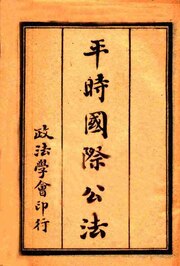 平時國際公法
政法學會印行